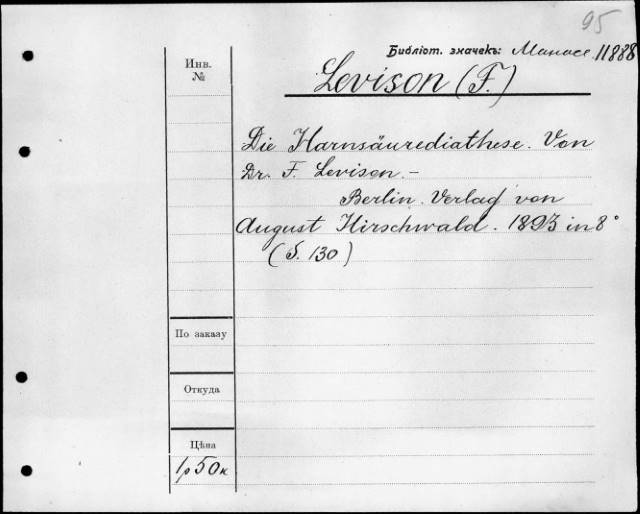 95
Библіот. значекъ: Манасс. 11888
Инв.
№
Levison (F.)
Die Harnsäurediathese. Von
Dr. F. Levison. –
Berlin. Verlag von
August Hirschwald. 1893 in 8°
(S. 130)
По заказу
Откуда
Цѣна
1р 50к